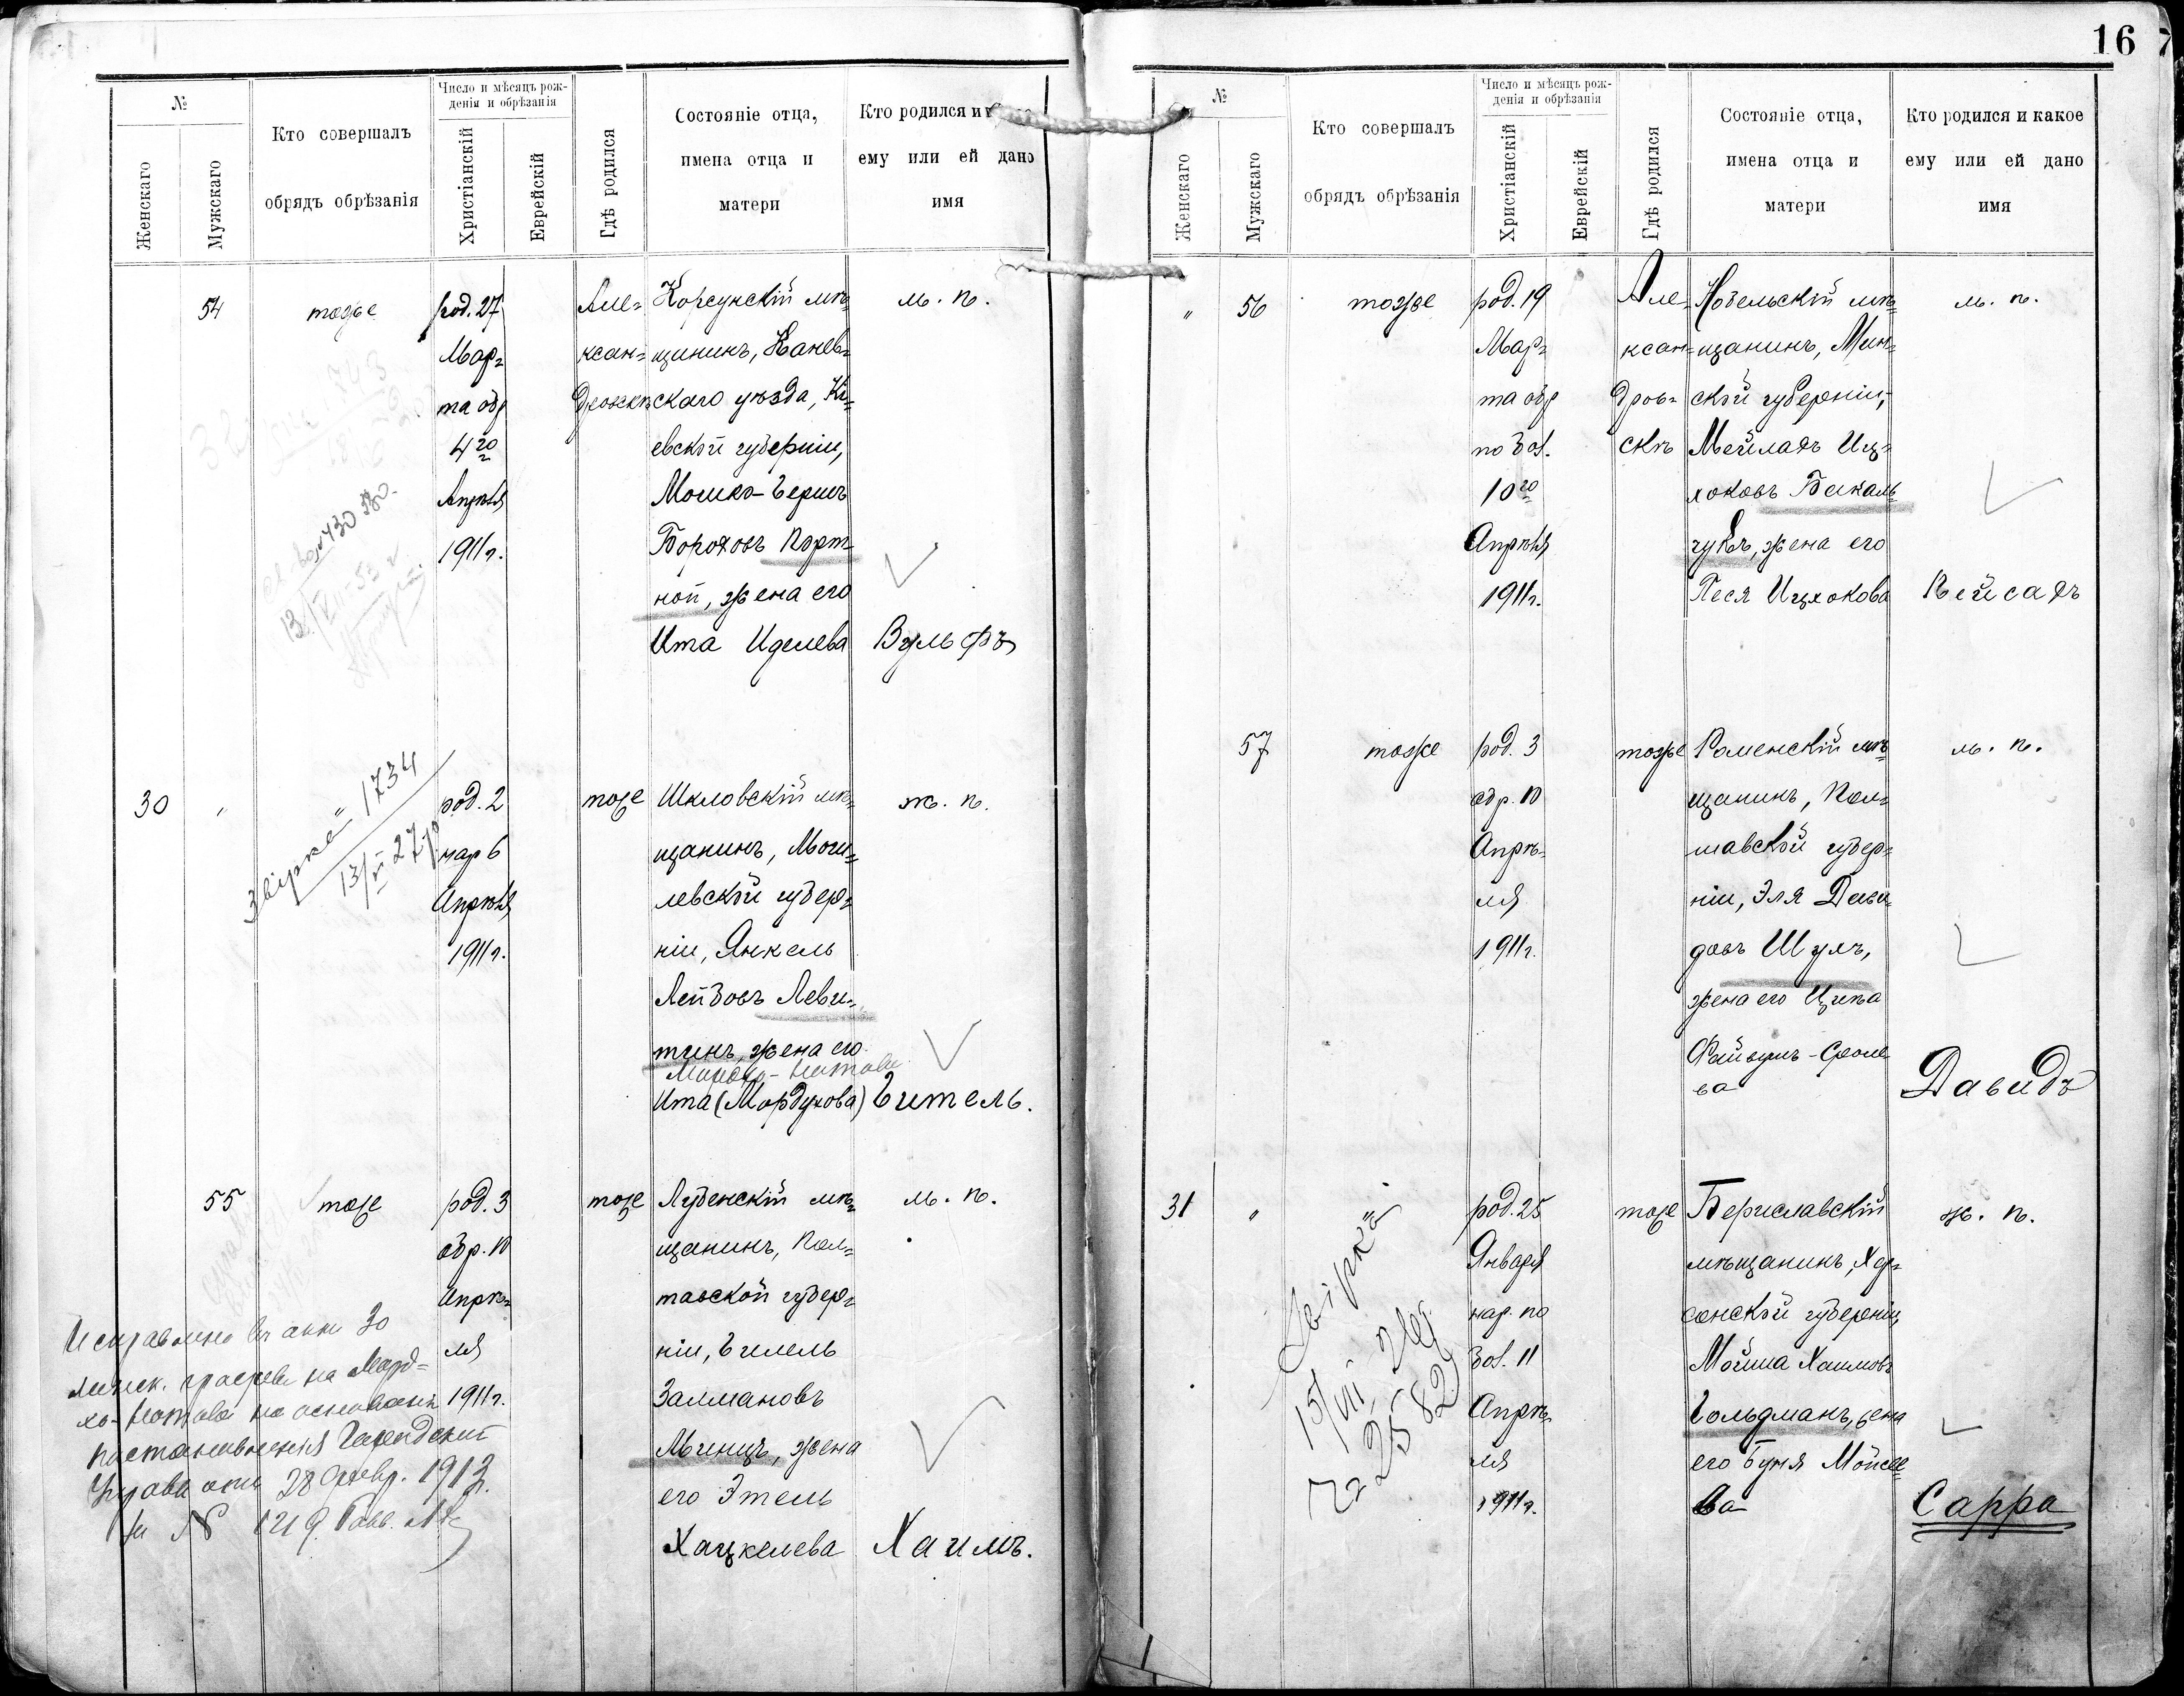 16
№
Женскаго
Мужскаго
Кто совершалъ
обрядъ обрѣзанія
Число и мѣсяцъ рож-
денія и обрѣзанія
Христіанскій
Еврейскій
Гдѣ родился
Состояніе отца,
имена отца и
матери
Кто родился и
ему или ей дано
имя
54
тоже
род. 27
Мар=
та обр
4го
Апрѣля
1911 г.
Але=
ксан=
дровскѣ
Корсунскій мѣ=
щанинъ, Канев=
скаго уѣзда, Кі=
евской губерніи,
Мошко-Гершъ
Бороховъ Порт=
ной, жена его
Ита Иделева
м. п.
Вульфъ
30
"
"Звірка" 1734
13/VI 27 р
род. 2
нар 6
Апрѣля
1911 г.
тоже
Шкловскій мѣ=
щанинъ, Моги=
левской губер=
ніи, Янкель
Лейзовъ Леви=
тинъ, жена его
Ита (Мордухова)
ж. п.
Гитель.
55
тоже
род. 3
обр. 10
Апрѣ=
ля
1911 г.
тоже
Лубенскій мѣ=
щанинъ, Пол=
тавской губер=
ніи, Гилель
Залмановъ
Минцъ, жена
его Этель
Хацкелева
м. п.
Хаимъ.
Исправлено въ акте 30
хо-Нотова на основаніи
постановленія Городской
Управы отъ 28 февр. 1913 г.
за № 1219.
№
Женскаго
Мужскаго
Кто совершалъ
обрядъ обрѣзанія
Число и мѣсяцъ рож-
денія и обрѣзанія
Христіанскій
Еврейскій
Гдѣ родился
Состояніе отца,
имена отца и
матери
Кто родился и какое
ему или ей дано
имя
"
56
тоже
род. 19
Мар=
та обр
по бол.
10го
Апрѣля
1911 г.
Але=
ксан=
дров=
скѣ
щанинъ, Мин=
ской губерніи,
Мейлахъ Иц=
хоковъ Бакаль
чукъ, жена его
Песя Ицхокова
м. п.
Пейсахъ
57
тоже
род. 3
обр. 10
Апрѣ=
ля
1911 г.
тоже
Роменскій мѣ=
щанинъ, Пол=
тавской губер=
ніи, Эля Дави=
довъ Шухъ,
жена его Ципа
Файвушъ-Сроле
ва
м. п.
Давидъ
31
"
"Звірка"
15/VII 2
№ 2582
род. 25
Января
нар. по
бол. 11
Апрѣ=
ля
1911 г.
тоже
Бериславскій
мѣщанинъ, Хер=
сонской губерніи,
Мойша Хаимовъ
Гольдманъ, жена
его Буня Мойсее
ва
ж. п.
Сарра